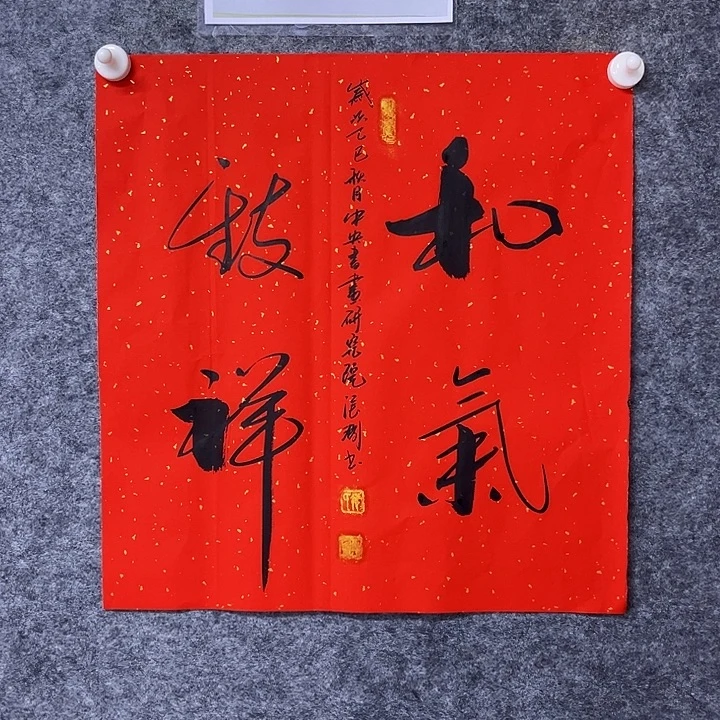 和氣
歲次乙巳秋月中央書畫研究院書
致祥